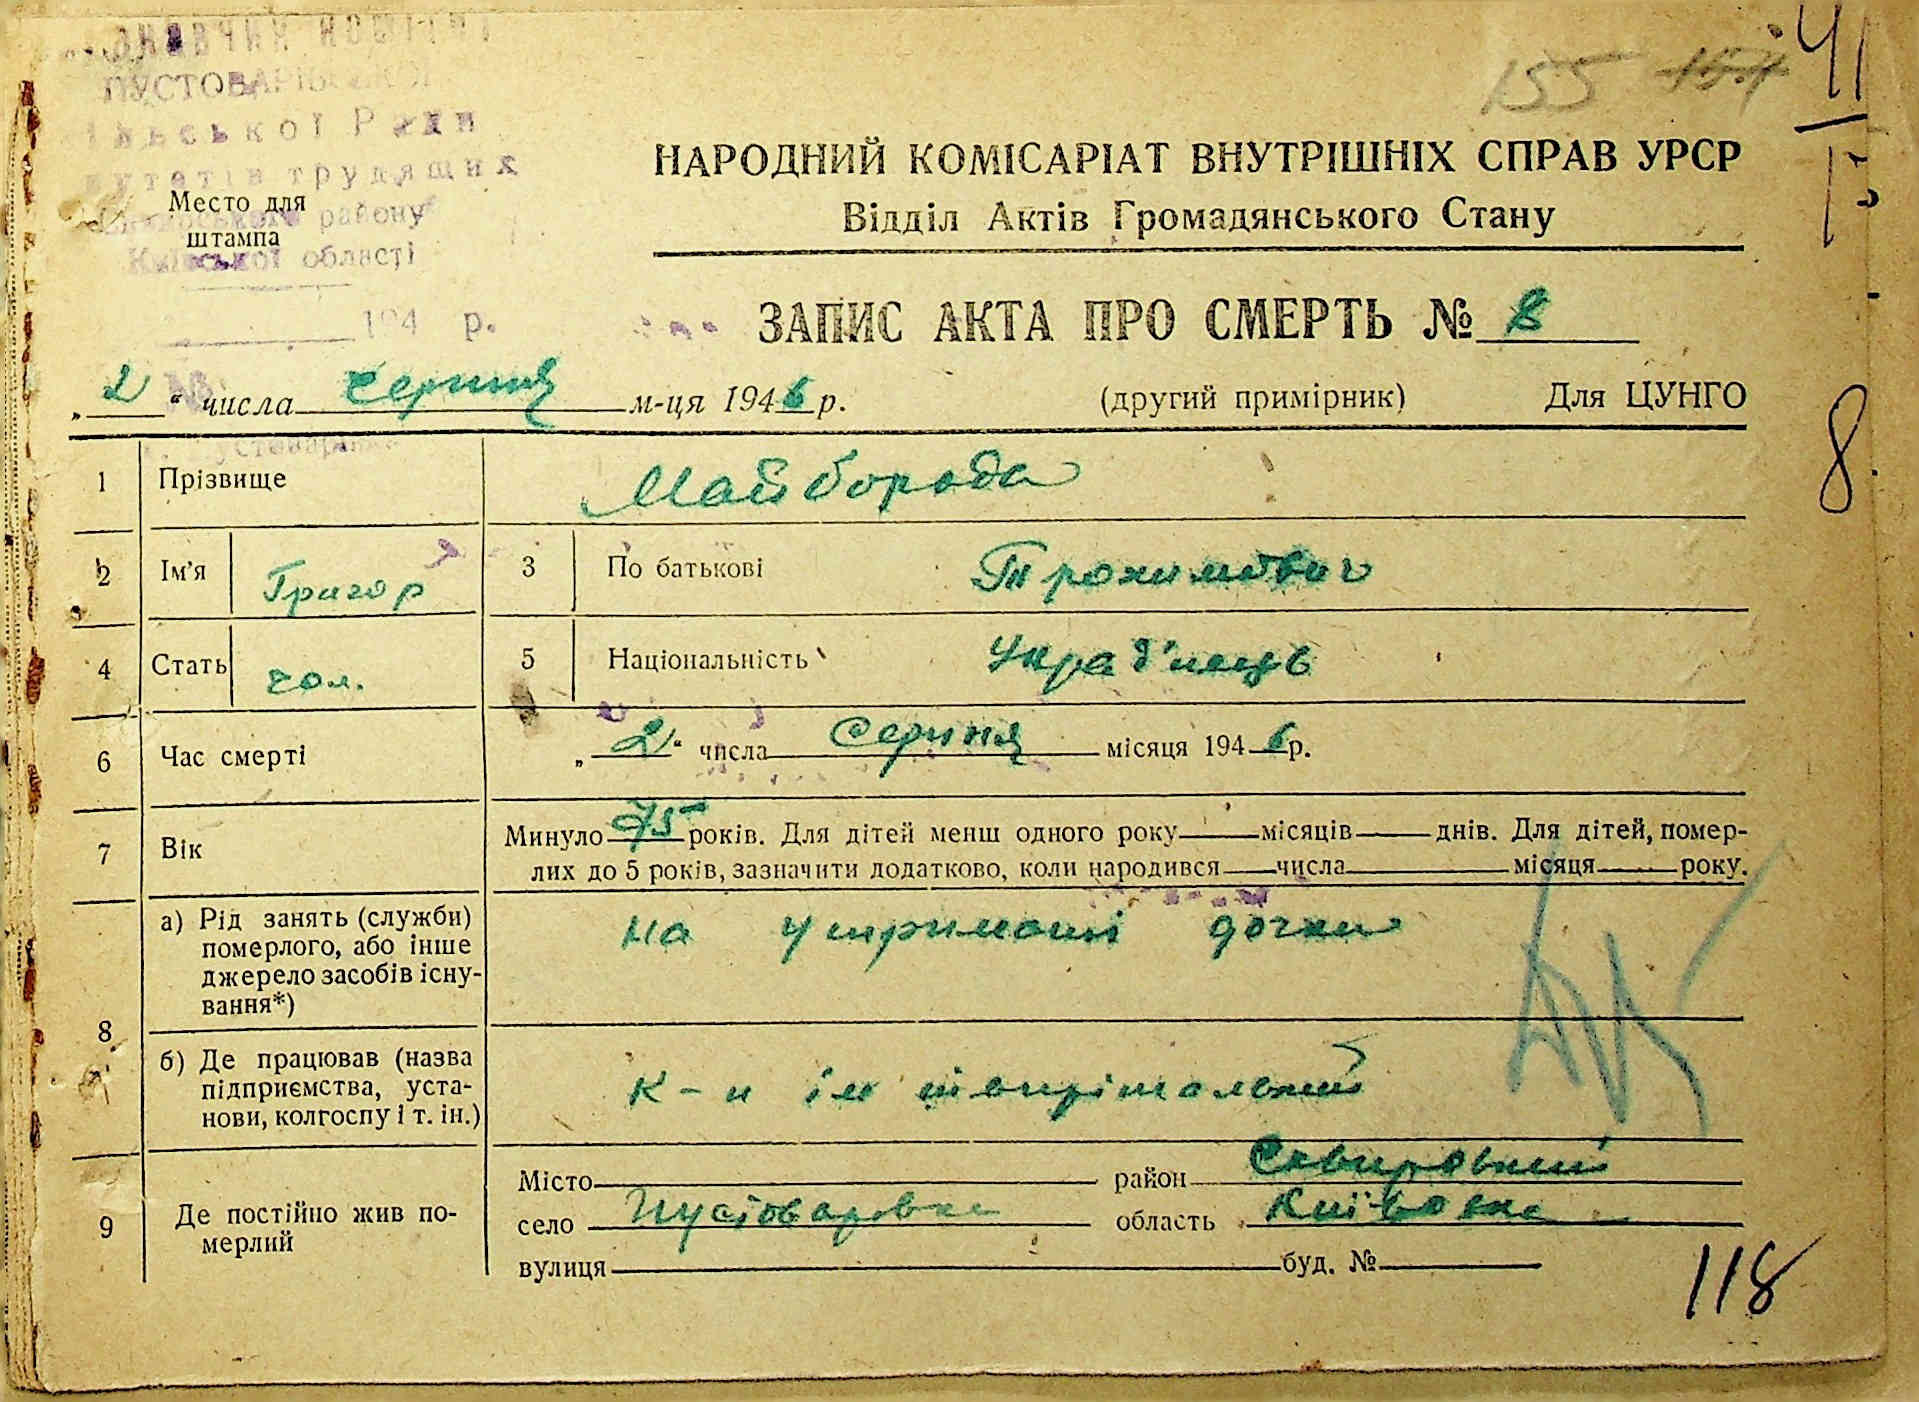 ПУСТОВАРІВСЬКОЇ
Ради
трудящих
району
Київської області
194 р.
Место для
штампа
155 154
41
НАРОДНИЙ КОМІСАРІАТ ВНУТРІШНІХ СПРАВ УРСР
Відділ Актів Громадянського Стану
ЗАПИС АКТА ПРО СМЕРТЬ № 8
„ 2 “ числа серпня м-ця 1946 р. (другий примірник) Для ЦУНГО
8.
1 Прізвище Майборода
2 Ім'я Григор 3 По батькові Трохимович
4 Стать чол. 5 Національність Україньць
6 Час смерті „ 2 “ числа Серпня місяця 1946 р.
7 Вік Минуло 75 років. Для дітей менш одного року місяців днів. Для дітей, помер-
лих до 5 років, зазначити додатково, коли народився числа місяця року.
8 а) Рід занять (служби)
померлого, або інше
джерело засобів існу-
вання*)
на утриманні дочки
б) Де працював (назва
підприємства, уста-
нови, колгоспу і т. ін.)
к-п ім
9 Де постійно жив по-
мерлий
Місто район Сквирський
село Пустоварівка область Київська
вулиця буд. №
118